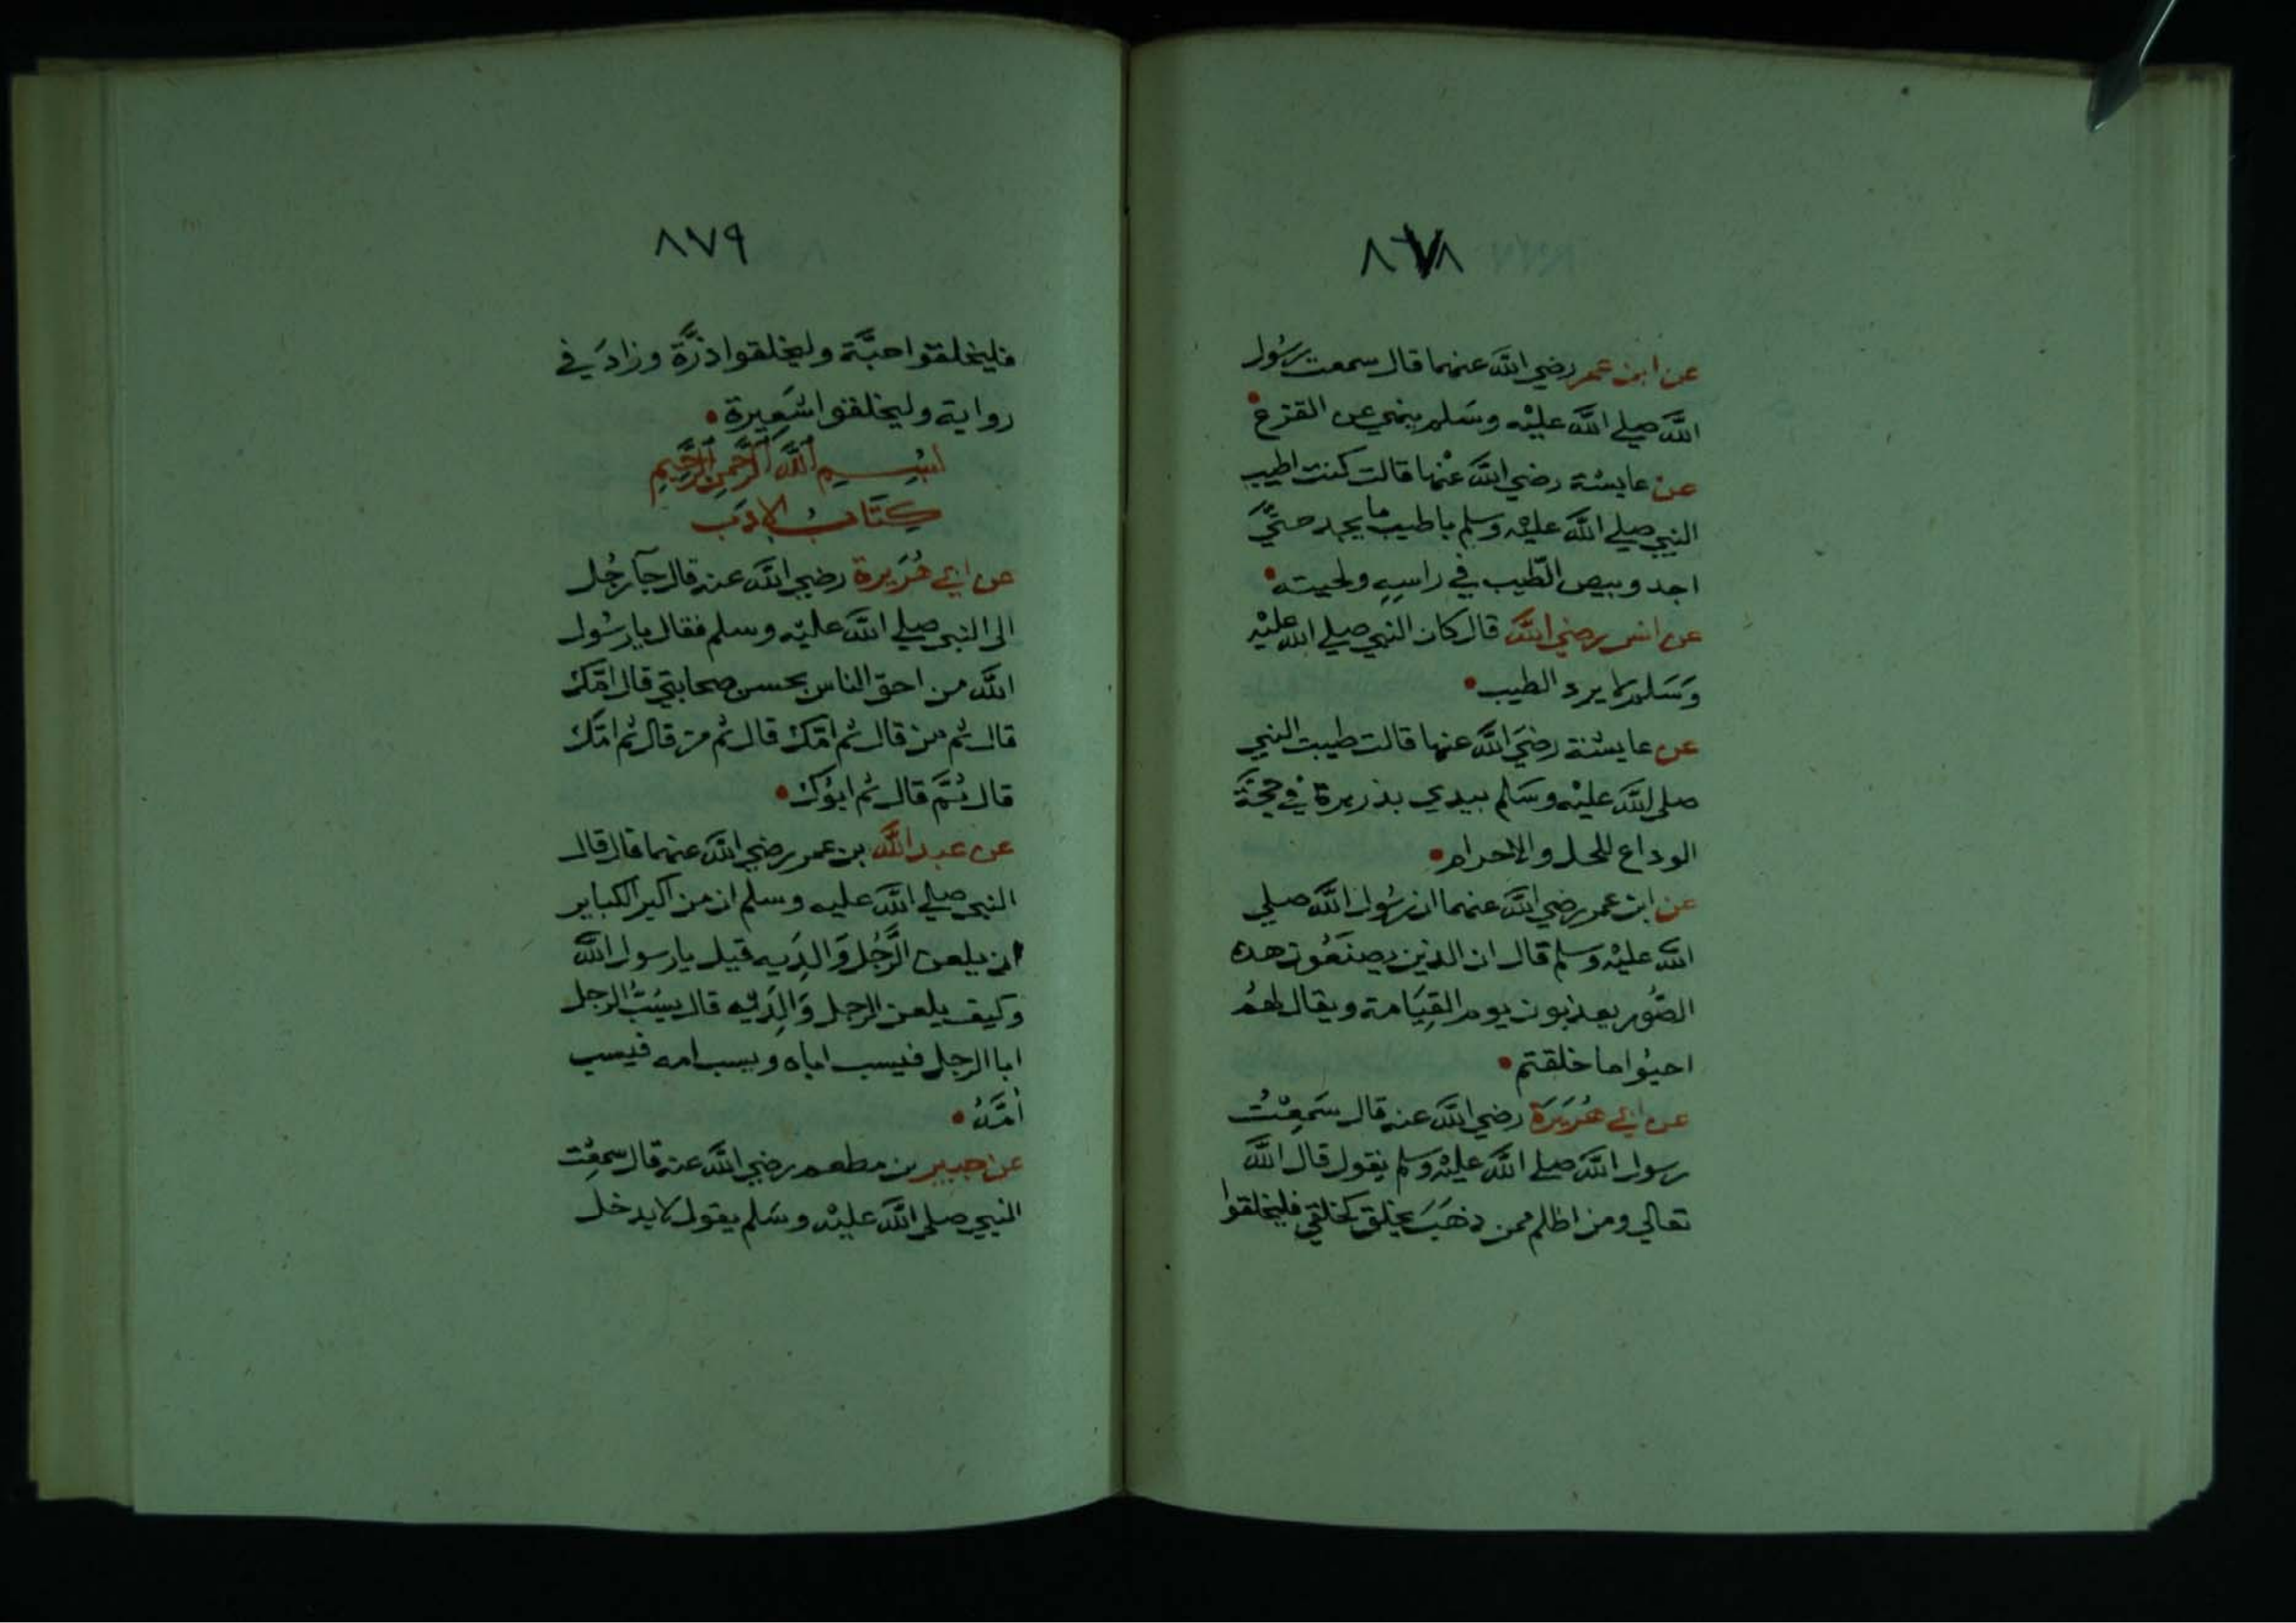 ٨٧٨
عن ابن عمر رضي الله عنهما قال سمعت رسول
الله صلي الله عليه وسلم ينهي عن القزع
عن عايشة رضي الله عنها قالت كنت اطيب
النبي صلي الله عليه وسلم باطيب ما يجد حتي
اجد وبيص الطيب في راسه ولحيته
عن انس رضي الله قال كان النبي صلي الله عليه
وسلم لا يرد الطيب
عن عايشة رضي الله عنها قالت طيبت النبي
صلي الله عليه وسلم بيدي بذريرة في حجة
الوداع للحل والاحرام
عن ابن عمر رضي الله عنهما ان رسول الله صلي
الله عليه وسلم قال ان الذين يصنعون هذه
الصور يعذبون يوم القيامة ويقال لهم
احيوا ما خلقتم
عن ابي هريرة رضي الله عنه قال سمعت
رسول الله صلي الله عليه وسلم يقول قال الله
تعالي ومن اظلم ممن ذهب يخلق كخلقي فليخلقوا
٨٧٩
فليخلقوا حبة وليخلقوا ذرة وزاد في
رواية وليخلقوا شعيرة
بسم الله الرحمن الرحيم
كتاب الادب
عن ابي هريرة رضي الله عنه قال جآ رجل
الي النبي صلي الله عليه وسلم فقال يا رسول
الله من احق الناس بحسن صحابتي قال امك
قال ثم من قال ثم امك قال ثم من قال ثم امك
قال ثم قال ثم ابوك
عن عبد الله بن عمر رضي الله عنهما قال قال
النبي صلي الله عليه وسلم ان من اكبر الكباير
ان يلعن الرجل والديه قيل يا رسول الله
وكيف يلعن الرجل والديه قال يسب الرجل
ابا الرجل فيسب اباه ويسب امه فيسب
امه
عن جبير بن مطعم رضي الله عنه قال سمعت
النبي صلي الله عليه وسلم يقول لا يدخل